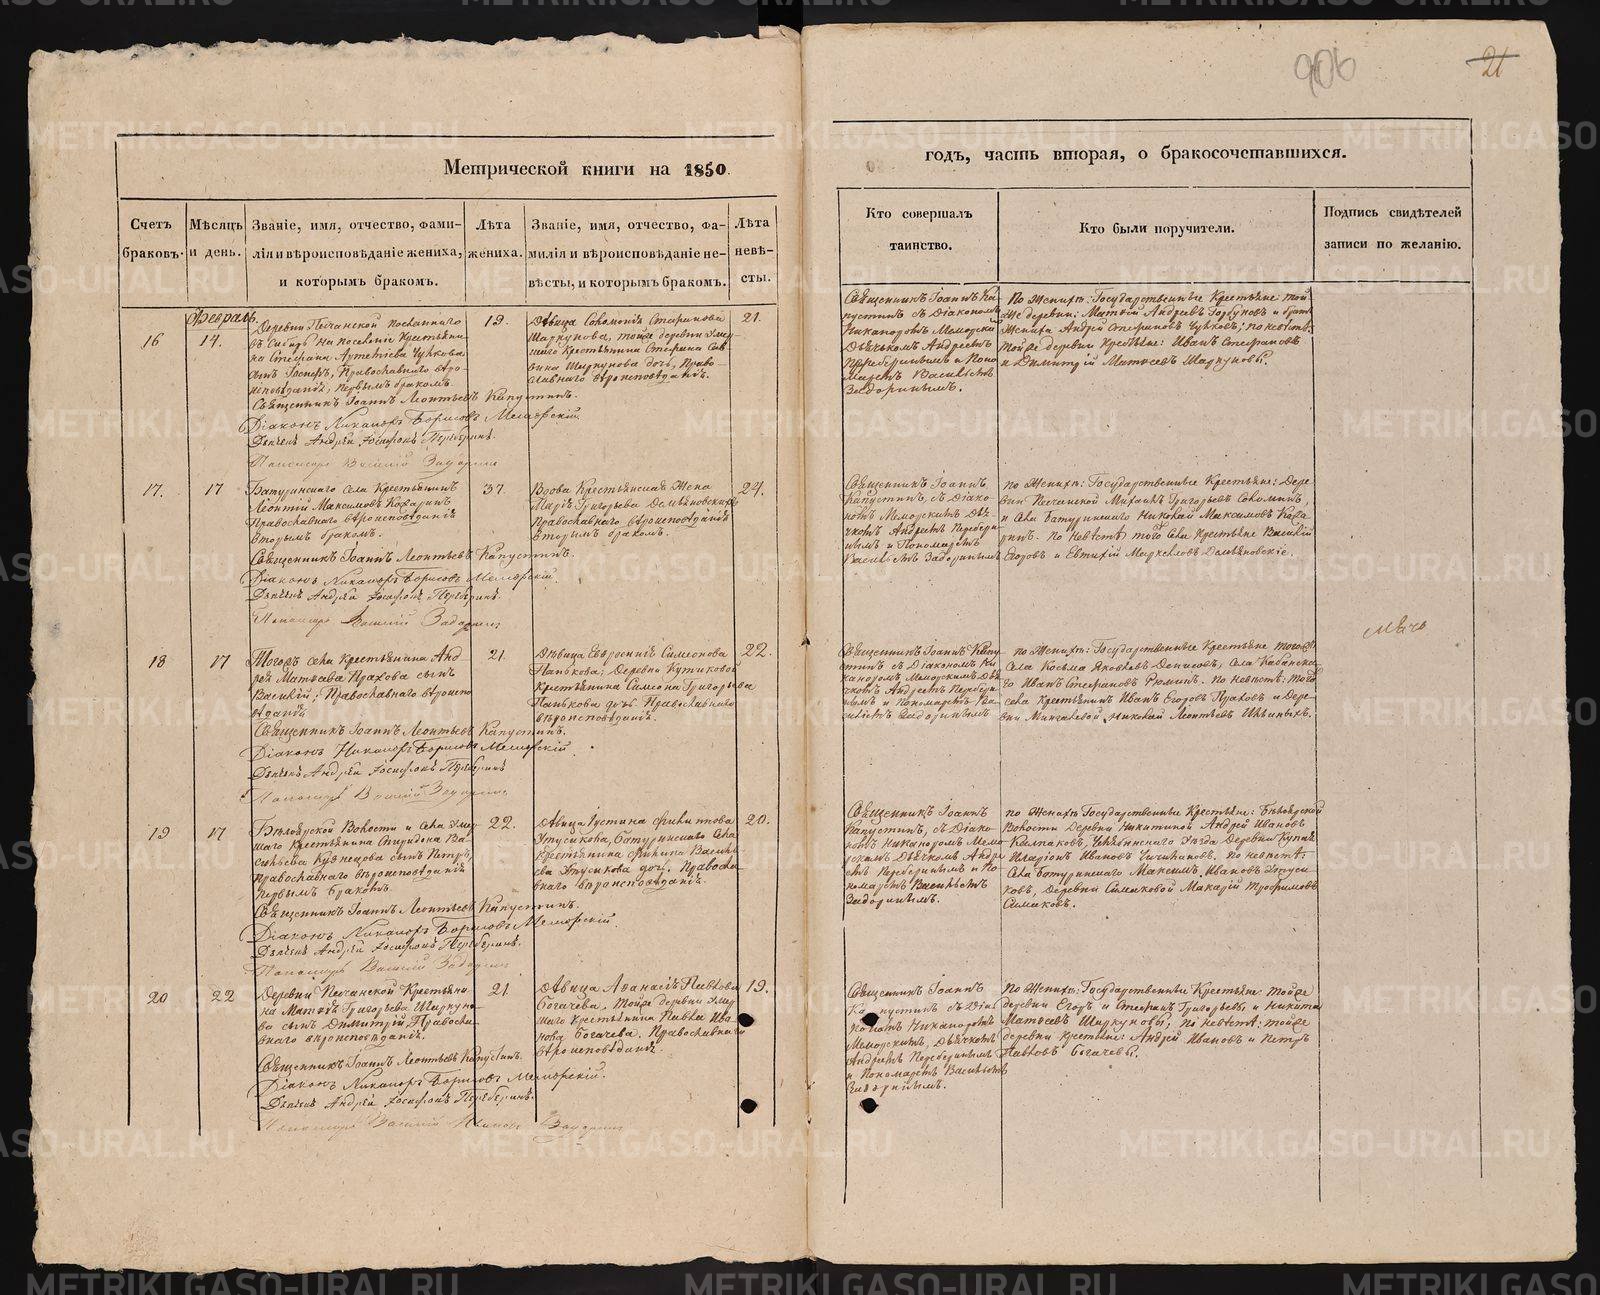 906
21
Метрической книги на 1850
годъ, часть вторая, о бракосочетавшихся.
Счетъ браковъ.
Мѣсяцъ и день.
Званіе, имя, отчество, фами-
лія и вѣроисповѣданіе жениха,
и которымъ бракомъ.
Лѣта жениха.
Званіе, имя, отчество, фа-
милія и вѣроисповѣданіе не-
вѣсты, и которымъ бракомъ.
Лѣта невѣ-
сты.
Кто совершалъ
таинство.
Кто были поручители.
Подпись свидѣтелей
записи по желанію.
Февраль
16
14.
Деревни Песчанской посланнаго
въ Сибирь на поселеніе Крестьяни-
на Стефана
сынъ Православнаго вѣро-
исповѣданія, первымъ бракомъ.
Священникъ Іоаннъ Леонтьевъ Капустинъ.
Діаконъ Никаноръ Борисовъ Меморскій.
Дьячекъ Андрей Іосифовъ Переберинъ.
Пономарь Василій Задоринъ
19.
Дѣвица Соломонія Стефанова
Шаркунова, тойже деревни умер-
шаго Крестьянина Стефана Сав-
вина Шаркунова дочь, Право-
славнаго вѣроисповѣданія.
21.
Священникъ Іоаннъ Ка-
пустинъ съ Діакономъ
Никаноромъ Меморскимъ
Дьячкомъ Андреемъ
Переберинымъ и Поно-
маремъ Василіемъ
Задоринымъ.
По Женихѣ: Государственные Крестьяне той
же деревни: Матвѣй Андреевъ Горбуновъ и братъ
Жениха Андрей Стефановъ Чупковъ; по невѣстѣ:
Тойже деревни Крестьяне: Иванъ Стефановъ
и Димитрій Матвеевъ Шаркуновы.
17.
17
Батуринскаго села Крестьянинъ
Леонтій Максимовъ Кокаринъ
Православнаго вѣроисповѣданія
вторымъ бракомъ.
Священникъ Іоаннъ Леонтьевъ Капустинъ.
Діаконъ Никаноръ Борисовъ Меморскій
Дьячекъ Андрей Іосифовъ Переберинъ.
Пономарь Василій Задоринъ
37.
Вдова Крестьянская Жена
Марія Григорьева Демьяновскихъ
Православнаго вѣроисповѣданія
вторымъ бракомъ.
24.
Священникъ Іоаннъ
Капустинъ, съ Діако-
номъ Меморскимъ Дья-
чкомъ Андреемъ Перебери-
нымъ и Пономаремъ
Василіемъ Задоринымъ
по Женихѣ: Государственные Крестьяне: Дере-
вни Песчанской Михаилъ Григорьевъ Соломинъ,
и села Батуринскаго Николай Максимовъ Кока-
ринъ. По невѣстѣ того села Крестьяне Василій
Егоровъ и Евтихій Михайловъ Демьяновскіе.
18
17
Тогожъ села Крестьянина Анд-
рея Матвеева Прахова сынъ
Василій; Православнаго вѣроиспо-
вѣданія
Священникъ Іоаннъ Леонтьевъ Капустинъ.
Діаконъ Никаноръ Борисовъ Меморскій
Дьячекъ Андрей Іосифовъ Переберинъ
Пономарь Василій Задоринъ
21.
Дѣвица Евросинія Симеонова
Панькова; Деревни Кутиковой
Крестьянина Симеона Григорьева
Панькова дочь Православнаго
вѣроисповѣданія.
22.
Священникъ Іоаннъ Капу-
стинъ съ Діакономъ Ни-
каноромъ Меморскимъ Дья-
чкомъ Андреемъ Перебери-
нымъ и Пономаремъ Ва-
силіемъ Задоринымъ
по Женихѣ: Государственные Крестьяне тогожъ
села Косьма Яковлевъ Денисовъ, села Кабанска-
го Иванъ Стефановъ Рюминъ. по невѣстѣ: того
села Крестьянинъ Иванъ Егоровъ Праховъ и Дере-
вни Мингалевой Николай Леонтьевъ Ильиныхъ.
смѣчо
19
17
Бѣлоярской Волости и села умер-
шаго Крестьянина Спиридона Ва-
сильева Кузнецова сынъ Петръ,
Православнаго вѣроисповѣданія
первымъ бракомъ.
Священникъ Іоаннъ Леонтьевъ Капустинъ.
Діаконъ Никаноръ Борисовъ Меморскій.
Дьячекъ Андрей Іосифовъ Переберинъ.
Пономарь Василій Задоринъ
22.
Дѣвица Іустина Филиппова
Утусикова, Батуринскаго села
Крестьянина Филиппа Василь-
ева Утусикова дочь. Правосла-
внаго вѣроисповѣданія.
20.
Священникъ Іоаннъ
Капустинъ, съ Діако-
номъ Никаноромъ Мемо-
рскимъ Дьячкомъ Андре-
емъ Переберинымъ и По-
номаремъ Василіемъ
Задоринымъ.
по Женихѣ Государственные Крестьяне: Бѣлоярской
Волости деревни Никитиной Андрей Ивановъ
Колпаковъ, Челябинскаго Уѣзда Деревни
Иларіонъ Ивановъ Чичилановъ. по невѣстѣ:
Села Батуринскаго Максимъ Ивановъ Утуси-
ковъ, деревни Симаковой Макарій Трофимовъ
Симаковъ.
20
22
Деревни Песчанской Крестьяни-
на Матвѣя Григорьева Шаркуно-
ва сынъ Димитрій Правосла-
внаго вѣроисповѣданія.
Священникъ Іоаннъ Леонтьевъ Капустинъ.
Діаконъ Никаноръ Борисовъ Меморскій.
Дьячекъ Андрей Іосифовъ Переберинъ.
Пономарь Василій Задоринъ
21.
Дѣвица Афанасія Павлова
Богачева. Тойже деревни умер-
шаго Крестьянина Павла Ива-
нова Богачева. Православнаго
вѣроисповѣданія.
19.
Священникъ Іоаннъ
Капустинъ съ Діа-
кономъ Никаноромъ
Меморскимъ, Дьячкомъ
Андреемъ Переберинымъ
и Пономаремъ Василіемъ
Задоринымъ.
По Женихѣ: Государственные Крестьяне: тойже
деревни Егоръ и Стефанъ Григорьевы, и Никита
Матвеевъ Шаркуновы; по невѣстѣ: тойже
деревни крестьяне: Андрей Ивановъ и Петръ
Павловъ Богачевы.